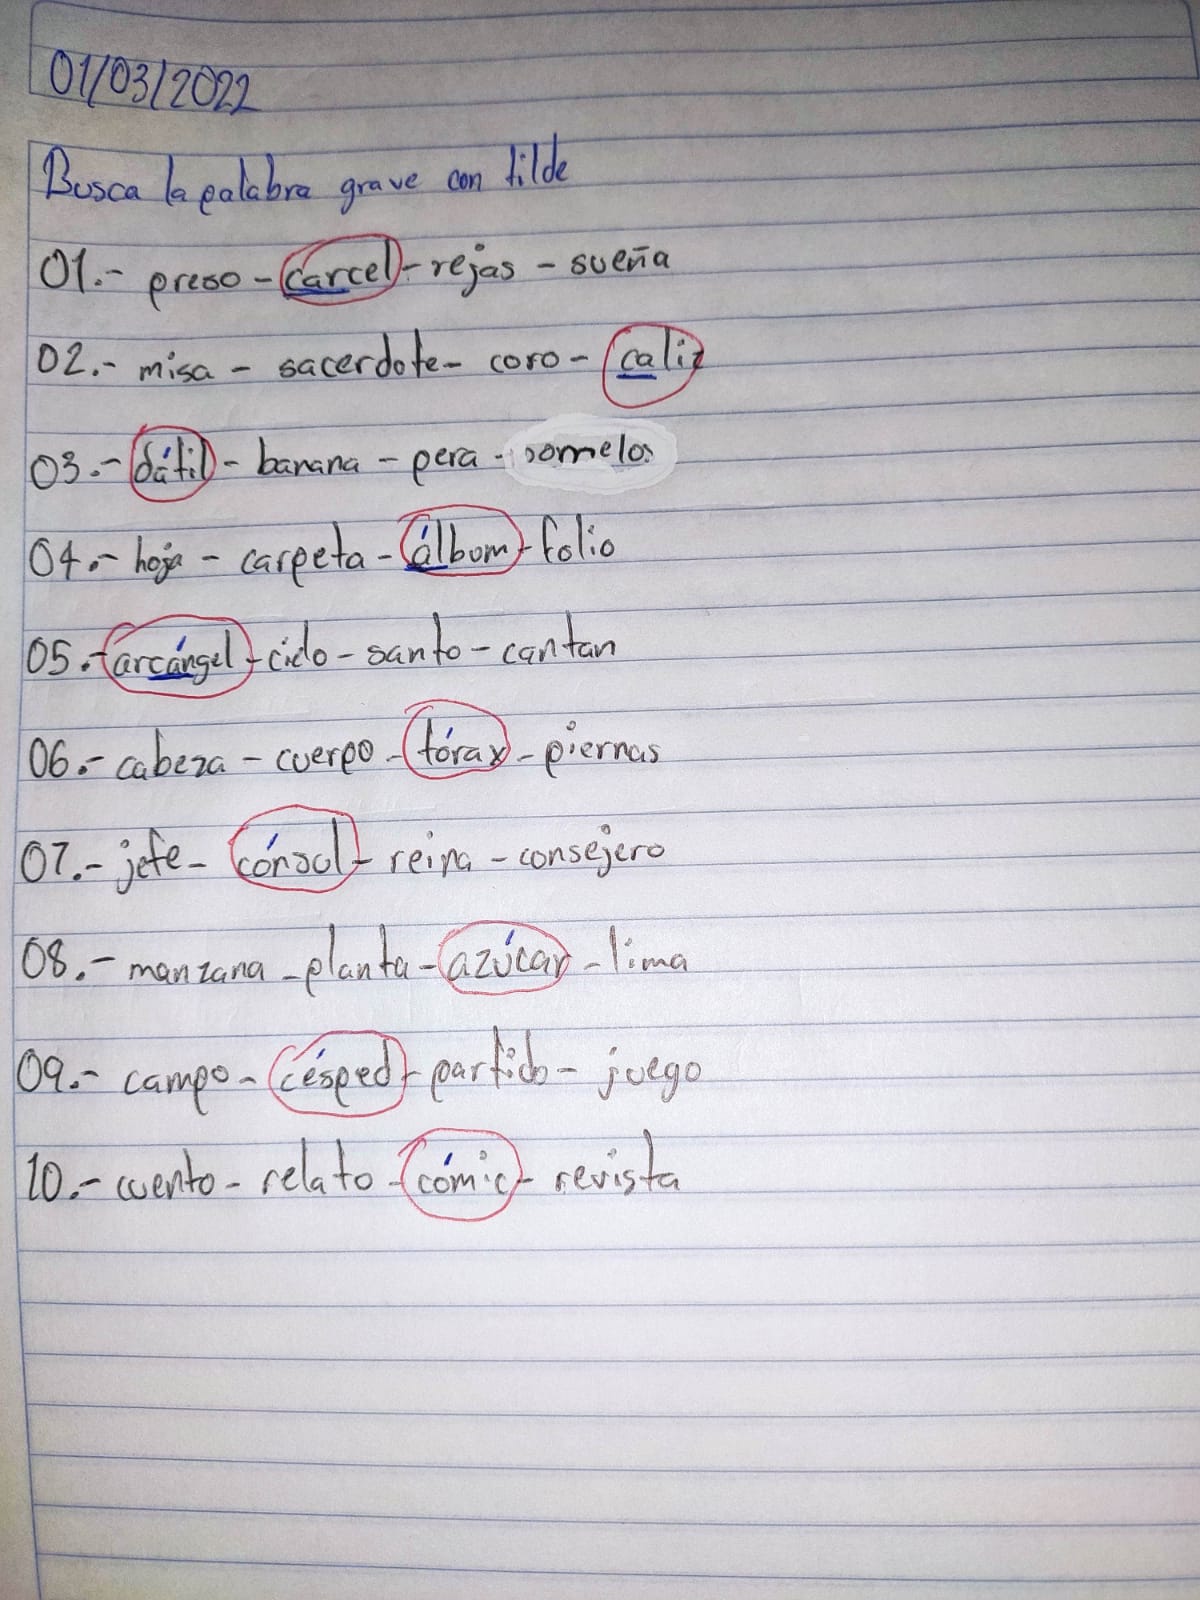 01/03/2022
Busca la palabra grave con tilde
01.- preso - carcel - rejas - sueña
02.- misa - sacerdote - coro - caliz
03.- dátil - banana - pera - pomelos
04.- hoja - carpeta - álbom - folio
05.- arcángel - cielo - santo - cantan
06.- cabeza - cuerpo - tórax - piernas
07.- jefe - cónsul - reina - consejero
08.- manzana - planta - azúcar - lima
09.- campo - césped - partido - juego
10.- cuento - relato - cómic - revista